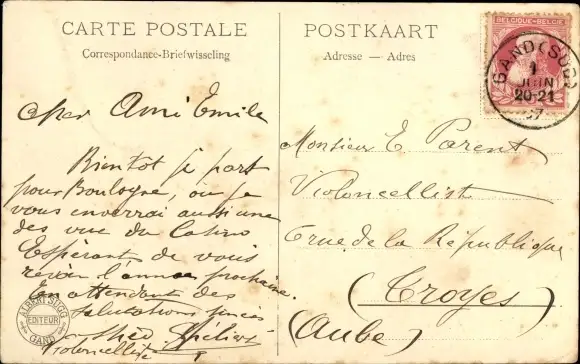 CARTE POSTALE
Correspondance-Briefwisseling
cher Ami Emile
Bientot je part
pour Boulogne, ou je
vous enverrai aussi une
des vue du Casino
Espérant de vous
revoir l'année prochaine.
En attendant des
salutations
Violoncelliste
ALBERT SUGG
EDITEUR
GAND
POSTKAART
Adresse — Adres
BELGIQUE-BELGIE
GAND (SUD)
1
JUIN
20-21
Monsieur E Parent
Violoncellist
rue de la République
(Troyes)
(Aube)